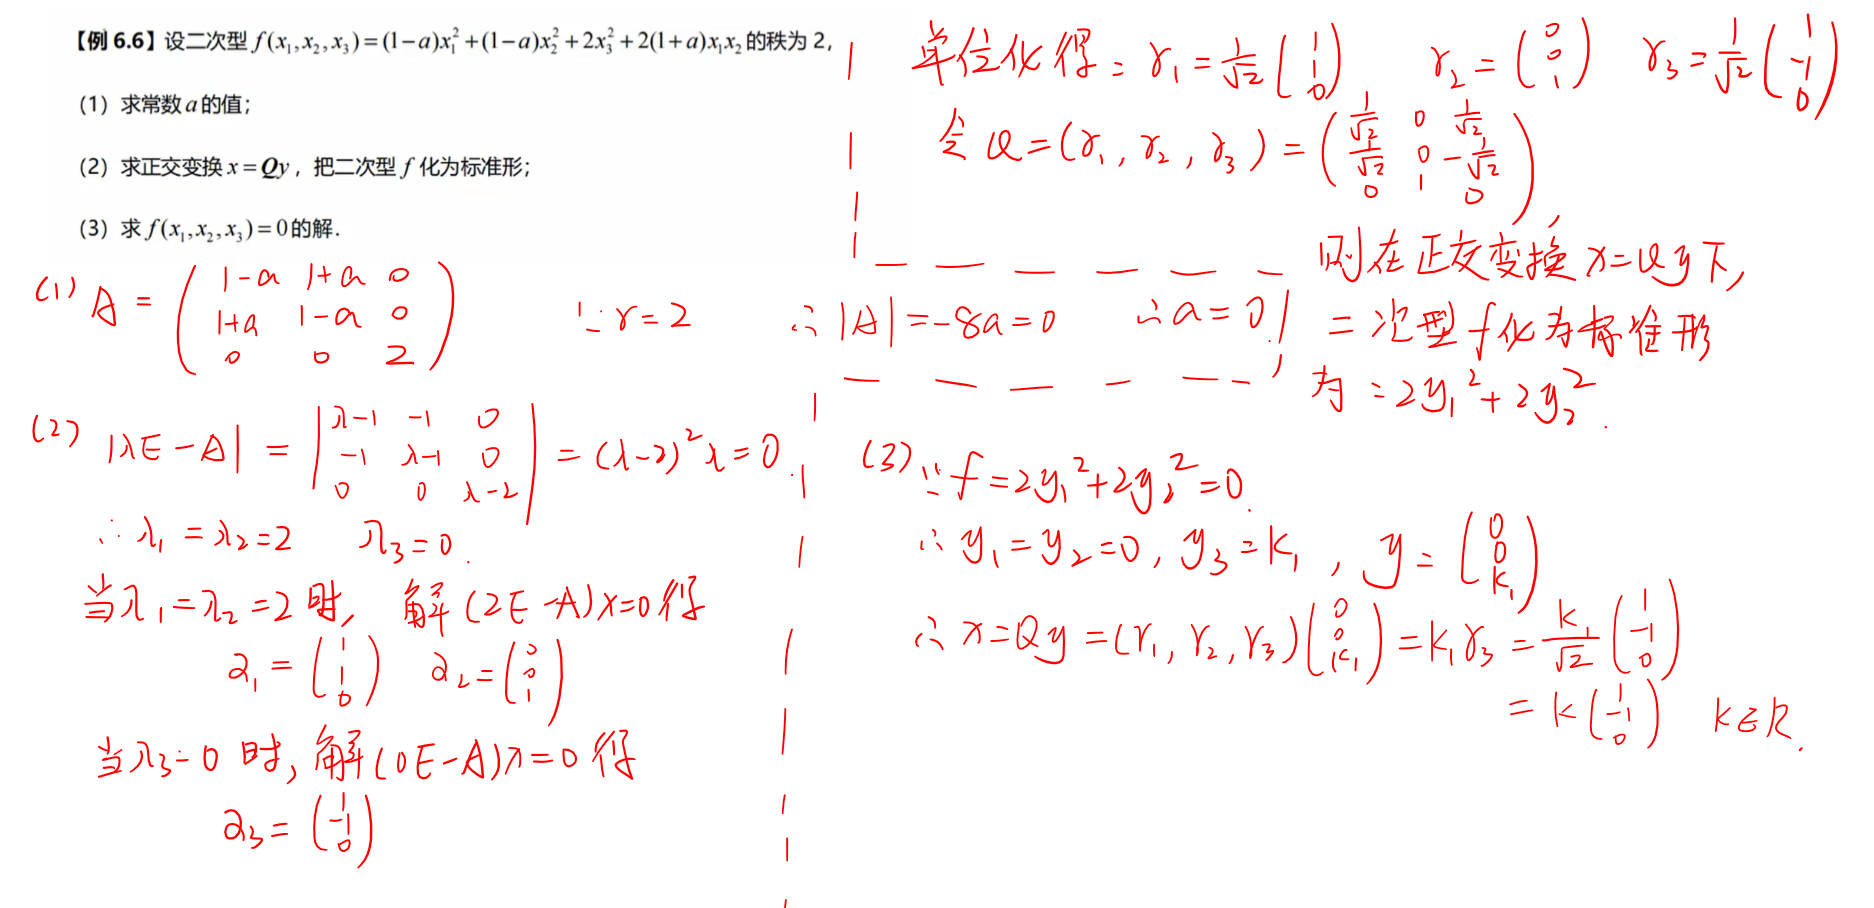 【例 6.6】设二次型 f(x₁,x₂,x₃)=(1−a)x₁²+(1−a)x₂²+2x₃²+2(1+a)x₁x₂ 的秩为 2，
（1）求常数 a 的值；
（2）求正交变换 x=Qy，把二次型 f 化为标准形；
（3）求 f(x₁,x₂,x₃)=0 的解.
(1) A = ( 1-a 1+a 0
1+a 1-a 0
0 0 2 ) ∵ r=2 ∴ |A|=-8a=0 ∴ a=0
(2) |λE-A| = | λ-1 -1 0
-1 λ-1 0
0 0 λ-2 | = (λ-2)²λ=0.
∴ λ₁=λ₂=2 λ₃=0.
当λ₁=λ₂=2时, 解(2E-A)x=0得
α₁=(1 1 0) α₂=(0 0 1)
当λ₃=0时, 解(0E-A)x=0得
α₃=(1 -1 0)
单位化得: γ₁=1/√2(1 1 0) γ₂=(0 0 1) γ₃=1/√2(1 -1 0)
令Q=(γ₁, γ₂, γ₃)=( 1/√2 0 1/√2
1/√2 0 -1/√2
0 1 0 ),
则在正交变换 x=Qy下,
二次型f化为标准形
为: 2y₁²+2y₂².
(3) ∵ f=2y₁²+2y₂²=0.
∴ y₁=y₂=0, y₃=k₁, y=(0 0 k₁)
∴ x=Qy=(γ₁, γ₂, γ₃)(0 0 k₁)=k₁γ₃=k₁/√2(1 -1 0)
=k(1 -1 0) k∈R.